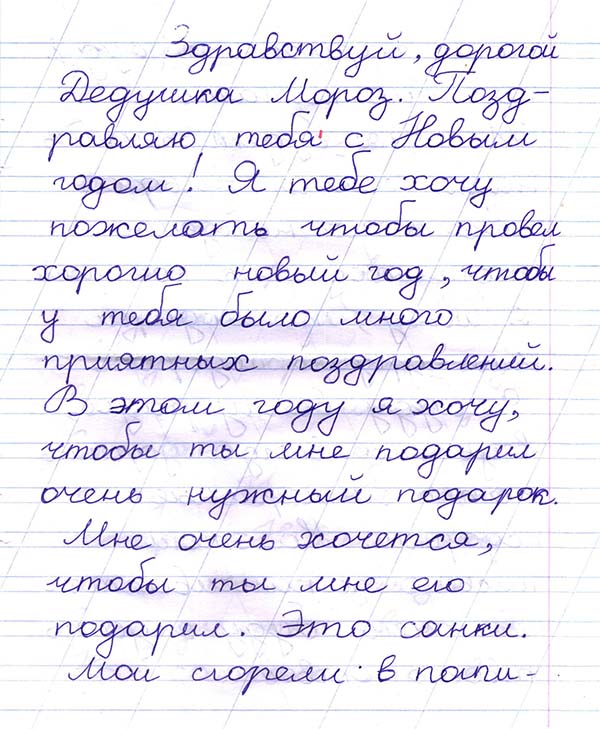 Здравствуй, дорогой
Дедушка Мороз. Позд-
равляю тебя с Новым
годом! Я тебе хочу
пожелать чтобы провел
хорошо новый год, чтобы
у тебя было много
приятных поздравлений.
В этом году я хочу,
чтобы ты мне подарил
очень нужный подарок.
Мне очень хочется,
чтобы ты мне его
подарил. Это санки.
Мои сгорели в папи-